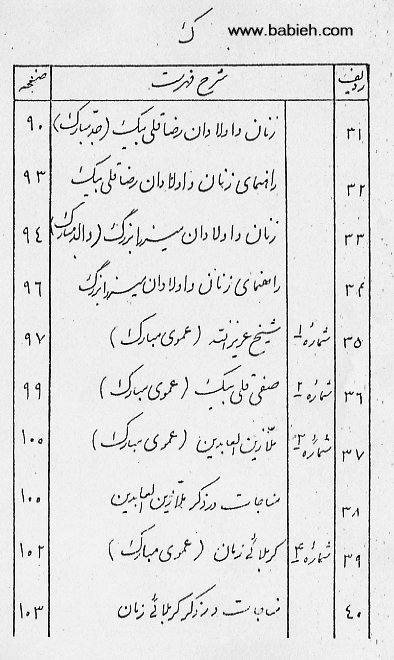 ک
www.babieh.com
ردیف شرح فهرست صفحه
۳۱ زنان و اولادان رضا قلی بیک (جد مبارک) ۹۰
۳۲ راهنمای زنان و اولادان رضا قلی بیک ۹۳
۳۳ زنان و اولادان میرزا بزرگ (والد مبارک) ۹۴
۳۴ راهنمای زنان و اولادان میرزا بزرگ ۹۶
۳۵ شمارهٔ ۱ شیخ عزیز الله (عموی مبارک) ۹۷
۳۶ شمارهٔ ۲ صفی قلی بیک (عموی مبارک) ۹۹
۳۷ شمارهٔ ۳ ملّا زین العابدین (عموی مبارک) ۱۰۰
۳۸ مناجات در ذکر ملّا زین العابدین ۱۰۰
۳۹ شمارهٔ ۴ کربلائی زمان (عموی مبارک) ۱۰۲
۴۰ مناجات در ذکر کربلائی زمان ۱۰۳